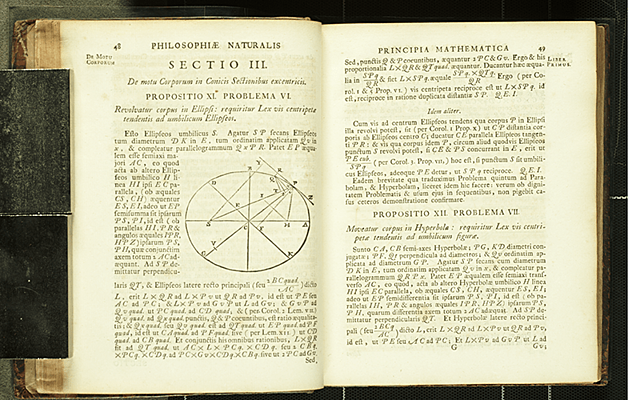 De Motu
Corporum
48
PHILOSOPHIÆ NATURALIS
SECTIO III.
De motu Corporum in Conicis Sectionibus excentricis.
PROPOSITIO XI. PROBLEMA VI.
Revolvatur corpus in Ellipsi: requiritur Lex vis centripetæ
tendentis ad umbilicum Ellipseos.
Esto Ellipseos umbilicus S. Agatur SP secans Ellipseos
tum diametrum DK in E, tum ordinatim applicatam Qv in
x, & compleatur parallelogrammum QxPR. Patet EP æqua-
lem esse semiaxi ma-
jori AC, eo quod
acta ab altero Ellip-
seos umbilico H li-
nea HI ipsi EC pa-
rallela, (ob æquales
CS, CH) æquentur
ES, EI, adeo ut EP
semisumma sit ipsarum
PS, PI, id est (ob
parallelas HI, PR &
angulos æquales IPR,
HPZ) ipsarum PS,
PH, quæ conjunctim
axem totum 2AC ad-
æquant. Ad SP de-
mittatur perpendicu-
laris QT, & Ellipseos latere recto principali (seu 2BC quad. / AC) dicto
L, erit L×QR ad L×Pv ut QR ad Pv, id est ut PE seu
AC ad PC; & L×Pv ad GvP ut L ad Gv; & GvP ad
Sed,
PRINCIPIA MATHEMATICA
49
Liber
Primus
Sed, punctis Q & P coeuntibus, æquantur 2PC & Gv. Ergo & his
proportionalia L×QR & QT quad. æquantur. Ducantur hæc æqua-
lia in SPq / QR & fiet L×SPq. æquale SPq.×QTq. / QR Ergo (per Co-
rol. 1 & 5 Prop. VI.) vis centripeta reciproce est ut L×SPq. id
est, reciproce in ratione duplicata distantiæ SP. Q.E.I.
Idem aliter.
Cum vis ad centrum Ellipseos tendens qua corpus P in Ellipsi
illa revolvi potest, sit (per Corol. 1 Prop. X) ut CP distantia cor-
poris ab Ellipseos centro C; ducatur CE parallela Ellipseos tangen-
ti PR; & vis qua corpus idem P, circum aliud quodvis Ellipseos
punctum S revolvi potest, si CE & PS concurrant in E, erit ut
PE cub. / SPq. (per Corol. 3 Prop. VII.) hoc est, si punctum S sit umbili-
cus Ellipseos, adeoque PE detur, ut SPq reciproce. Q.E.I.
Eadem brevitate qua traduximus Problema quintum ad Para-
bolam, & Hyperbolam, liceret idem hic facere: verum ob digni-
tatem Problematis & usum ejus in sequentibus, non pigebit ca-
sus ceteros demonstratione confirmare.
PROPOSITIO XII. PROBLEMA VII.
Moveatur corpus in Hyperbola: requiritur Lex vis centri-
petæ tendentis ad umbilicum figuræ.
Sunto CA, CB semi-axes Hyperbolæ; PG, KD diametri con-
jugatæ; PF, Qt perpendicula ad diametros; & Qv ordinatim ap-
plicata ad diametrum GP. Agatur SP secans tum diametrum
DK in E, tum ordinatim applicatam Qv in x, & compleatur pa-
rallelogrammum QRPx. Patet EP æqualem esse semiaxi trans-
verso AC, eo quod, acta ab altero Hyperbolæ umbilico H linea
HI ipsi EC parallela, ob æquales CS, CH, æquentur ES, EI;
adeo ut EP semidifferentia sit ipsarum PS, PI, id est (ob pa-
rallelas HI, PR & angulos æquales IPR, HPZ) ipsarum PS,
PH, quarum differentia axem totum 2AC adæquat. Ad SP de-
mittatur perpendicularis QT. Et Hyperbolæ latere recto princi-
pali (seu 2BCq / AC) dicto L, erit L×QR ad L×Pv ut QR ad Pv,
id est, ut PE seu AC ad PC; Et L×Pv ad GvP ut L ad
G
Gv;